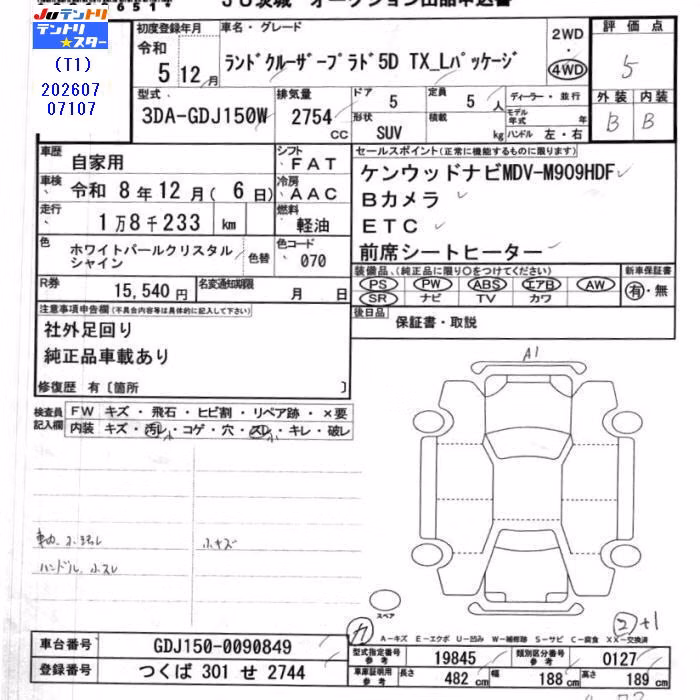 JU茨城 オークション出品申込書
JUテントリ
テントリ★スター
(T1)
202607
07107
初度登録年月
令和
5 12月
車名・グレード
ランドクルーザープラド5D TX_Lパッケージ
2WD
・
4WD
評価点
5
外装 内装
B B
型式
3DA-GDJ150W
排気量
2754
cc
ドア 5
形状 SUV
定員 5 人
積載 kg
ディーラー・並行
モデル年式 年
ハンドル 左・右
車歴
自家用
シフト
FAT
車検
令和 8年12月( 6日)
冷房
AAC
走行
1万8千233 km
燃料
軽油
色
ホワイトパールクリスタル
シャイン
色替
色コード
070
R券
15,540円
名変通知期限
月 日
セールスポイント(正常に機能するものに限ります)
ケンウッドナビMDV-M909HDF
Bカメラ
ETC
前席シートヒーター
装備品(純正品に限り○をつけてください)
PS PW ABS エアB AW
SR ナビ TV カワ
新車保証書
有・無
後日品
保証書・取説
注意事項申告欄(不具合内容等は具体的に記入して下さい)
社外足回り
純正品車載あり
修復歴 有〔箇所 〕
検査員
記入欄
FW キズ・飛石・ヒビ割・リペア跡・×要
内装 キズ・汚れ・コゲ・穴・スレ・キレ・破レ
小キズ
ハンドル小スレ
A1
スペア
A-キズ E-エクボ U-凹み W-補修跡 S-サビ C-腐食 XX-交換済
車台番号
GDJ150-0090849
登録番号
つくば 301 せ 2744
型式指定番号
参考
19845
類別区分番号
参考
0127
車庫証明用
参考
長さ 482 cm 幅 188 cm 高さ 189 cm